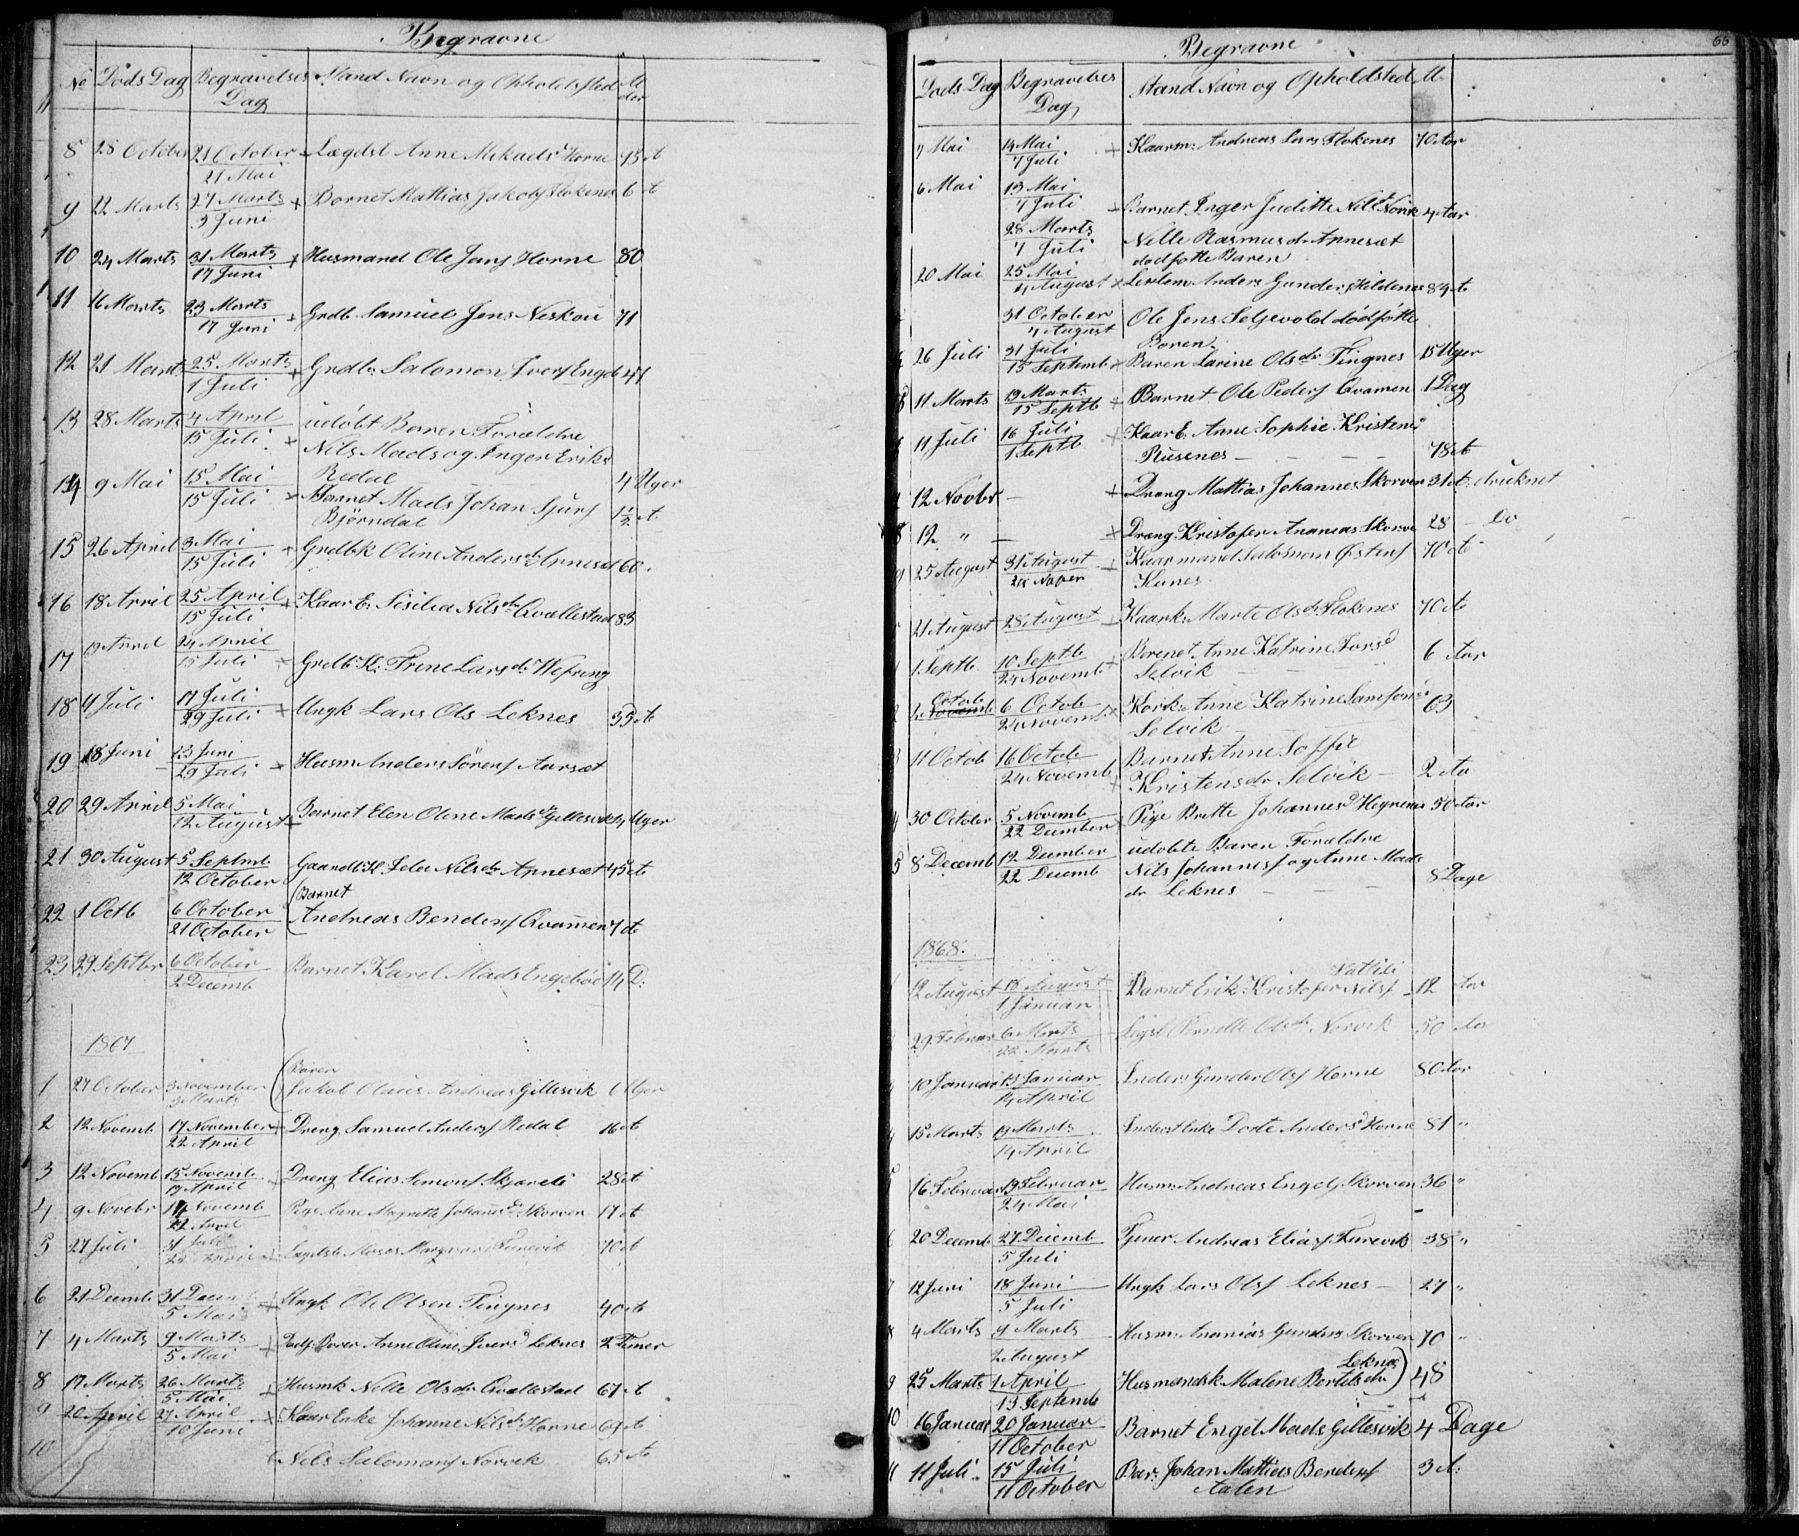 Begravne
No Döds Dag Begravelses Dag Stand Navn og Opholdssted Alder
8 28 October 21 October 21 Mai Lægdsl Anne Mikaelsd Horne 75 A
9 22 Marts 27 Marts 3 Juni + Barnet Mathias Jakobs Stokenes 6 A
10 24 Marts 31 Marts 17 Juni + Husmand Ole Jans Horne 80
11 16 Marts 23 Marts 17 Juni + Grdb Samuel Jens Neskou 71
12 21 Marts 25 Marts 1 Juli + Grdb. Salomon Ivers Engeb 47
13 28 Marts 4 April 15 Juli + udöbt Baren Forældre
Nils Mads og Inger Eriks
Redal
14 9 Mai 15 Mai 15 Juli + Barnet Mads Johan Sjurs 4 Uger
Björndal 1½ A
15 26 April 3 Mai 15 Juli + Grdbk Oline Anders dr Arnesed 60
16 18 April 25 April 15 Juli + Kaar E. Sisilia Nils dr Qvallestad 83
17 April 24 April 15 Juli + Grdb K: Trine Lars dr Wefring
18 4 Juli 17 Juli 29 Juli + Ungk Lars Ols Leknes 35 A
19 18 Juni 23 Juni 29 Juli + Husm Anders Sörens Aarsæt
20 29 April 5 Mai 12 August + Barnet Elen Oline Mads dr Gillesvik 14 Uger
21 30 August 5 Septmb 12 October Gaardb K Nils dr Arnesæt 45 A
22 1 Octb 6 October 21 October (Barnet
Andreas Benders Qvamen 7 A
23 29 Septbr 6 October 2 Decemb Barnet Karel Mads Engeböe 14 D.
1867
1 27 October 3 November 3 Marts (Baren
Jakob Olaus Andreas Gillesvik 6 Uger
2 12 Novemb 17 November 22 April + Dreng Samuel Anders Redal 16 A
3 12 Novemb 15 Novemb April + Dreng Elias Simons 28 A
4 9 Novbr 14 Novemb 22 April Pige Anne Magrette Johans dr Skorven 17 A
5 27 Juli 31 Juli 22 April + Lægdsl Moses Furevik 70 A
6 21 Decmb 31 Decmb 5 Mai + Ungk Ole Olsen Tingnes 40 A
7 4 Marts 9 Marts 5 Mai + Baren Anne Oline Ivers d Leknes 2 Timer
8 17 Marts 26 Marts 5 Mai + Husmk Nille Ols dr Qvallestad 67 A
9 20 April 27 April 10 Juni + Kaar Enke Johanne Nils dr Horne 69 A
10 + Nils Salomons Norvik 65 A
66
Begravne
Döds Dag Begravelses Dag Stand Navn og Opholdsted Al
7 Mai 14 Mai 7 Juli + Kaarm: Andreas Lars Stokenes 70 Aar
6 Mai 13 Mai 7 Juli + Barnet Inger Juditte Nils d Norvik 4 Aar
28 Marts 7 Juli Nille Rasmus dr Arnesæt
dödfötte Baren
20 Mai 25 Mai 4 August + Anders Gunders Hildenes 84 A
31 October 4 August Ole Jens Seljevold dödfötte
Baren
26 Juli 31 Juli 15 Septemb + Baren Larine Ols dr Tingnes 15 Uger
11 Marts 19 Marts 15 Septb + Barnet Ole Peders Qvamen 1 Dag
11 Juli 16 Juli 1 Septb + Kaar E. Anne Sophie Kristens d
Rusenes 78 A
12 Novbr – + Dreng Mathias Johannes Skorven 31 A. druknet
12 " – + Dreng Kristofer Ananias Skorve 28 – Do
9 25 August 31 August 24 Novbr + Kaarmand Salomon Östens 70 A
21 August 28 August + Kaark. Marte Ols dr Stokenes 70 A
1 Septb 10 Septb 24 Novemb + Barnet Anne Katrine Tors d 6 Aar
Selvik
2 Octob 6 Octob 24 Novemb + Kark. Anne Katrine Samsons d 63
Selvik
3 11 Octob 16 Octob 24 Novemb + Barnet Anne Soffie
Kristens dr Selvik – 2 Aa
4 30 October 5 Novemb 22 Decmber Pige Brette Johannes d Hegrenes 50 Aar
5 8 Decemb 12 Decmber 22 Decemb udöbte Baren Foraldre
Nils Johannes og Anne Mads
dr Leknes 8 Dage
1868.
12 August 18 August 1 Januar Barnet Erik Kristofer Nils – 12 Aar
29 Februar 6 Marts 22 Marts Legsl Pernille Ols dr Norvik 50 Aar
10 Januar 13 Januar 14 April Inders Gunder Ols Horne 80 Aar
15 Marts 19 Marts 14 April Inderst Enke Dorte Anders d Horne 81 "
16 Februar 19 Februar 24 Mai Husm: Andreas Engels Skorven 36 "
6 20 Decemb 27 Decemb 5 Juli Tjener Andreas Elias Furevik 38 "
7 12 Juni 18 Juni 5 Juli Ungk Lars Ols Leknes – 27 "
8 4 Marts 9 Marts 2 August Husm: Ananias Gunders Skorven 70 "
9 25 Marts 1 April 13 Septemb Husmandsk Malene Bertels dr Leknes) 48
10 16 Januar 20 Januar 11 October Barnet Engel Mads Gillesvik 4 Dage
11 11 Juli 15 Juli 11 October Bar: Johan Mattias Benders 3 A:
Aalen